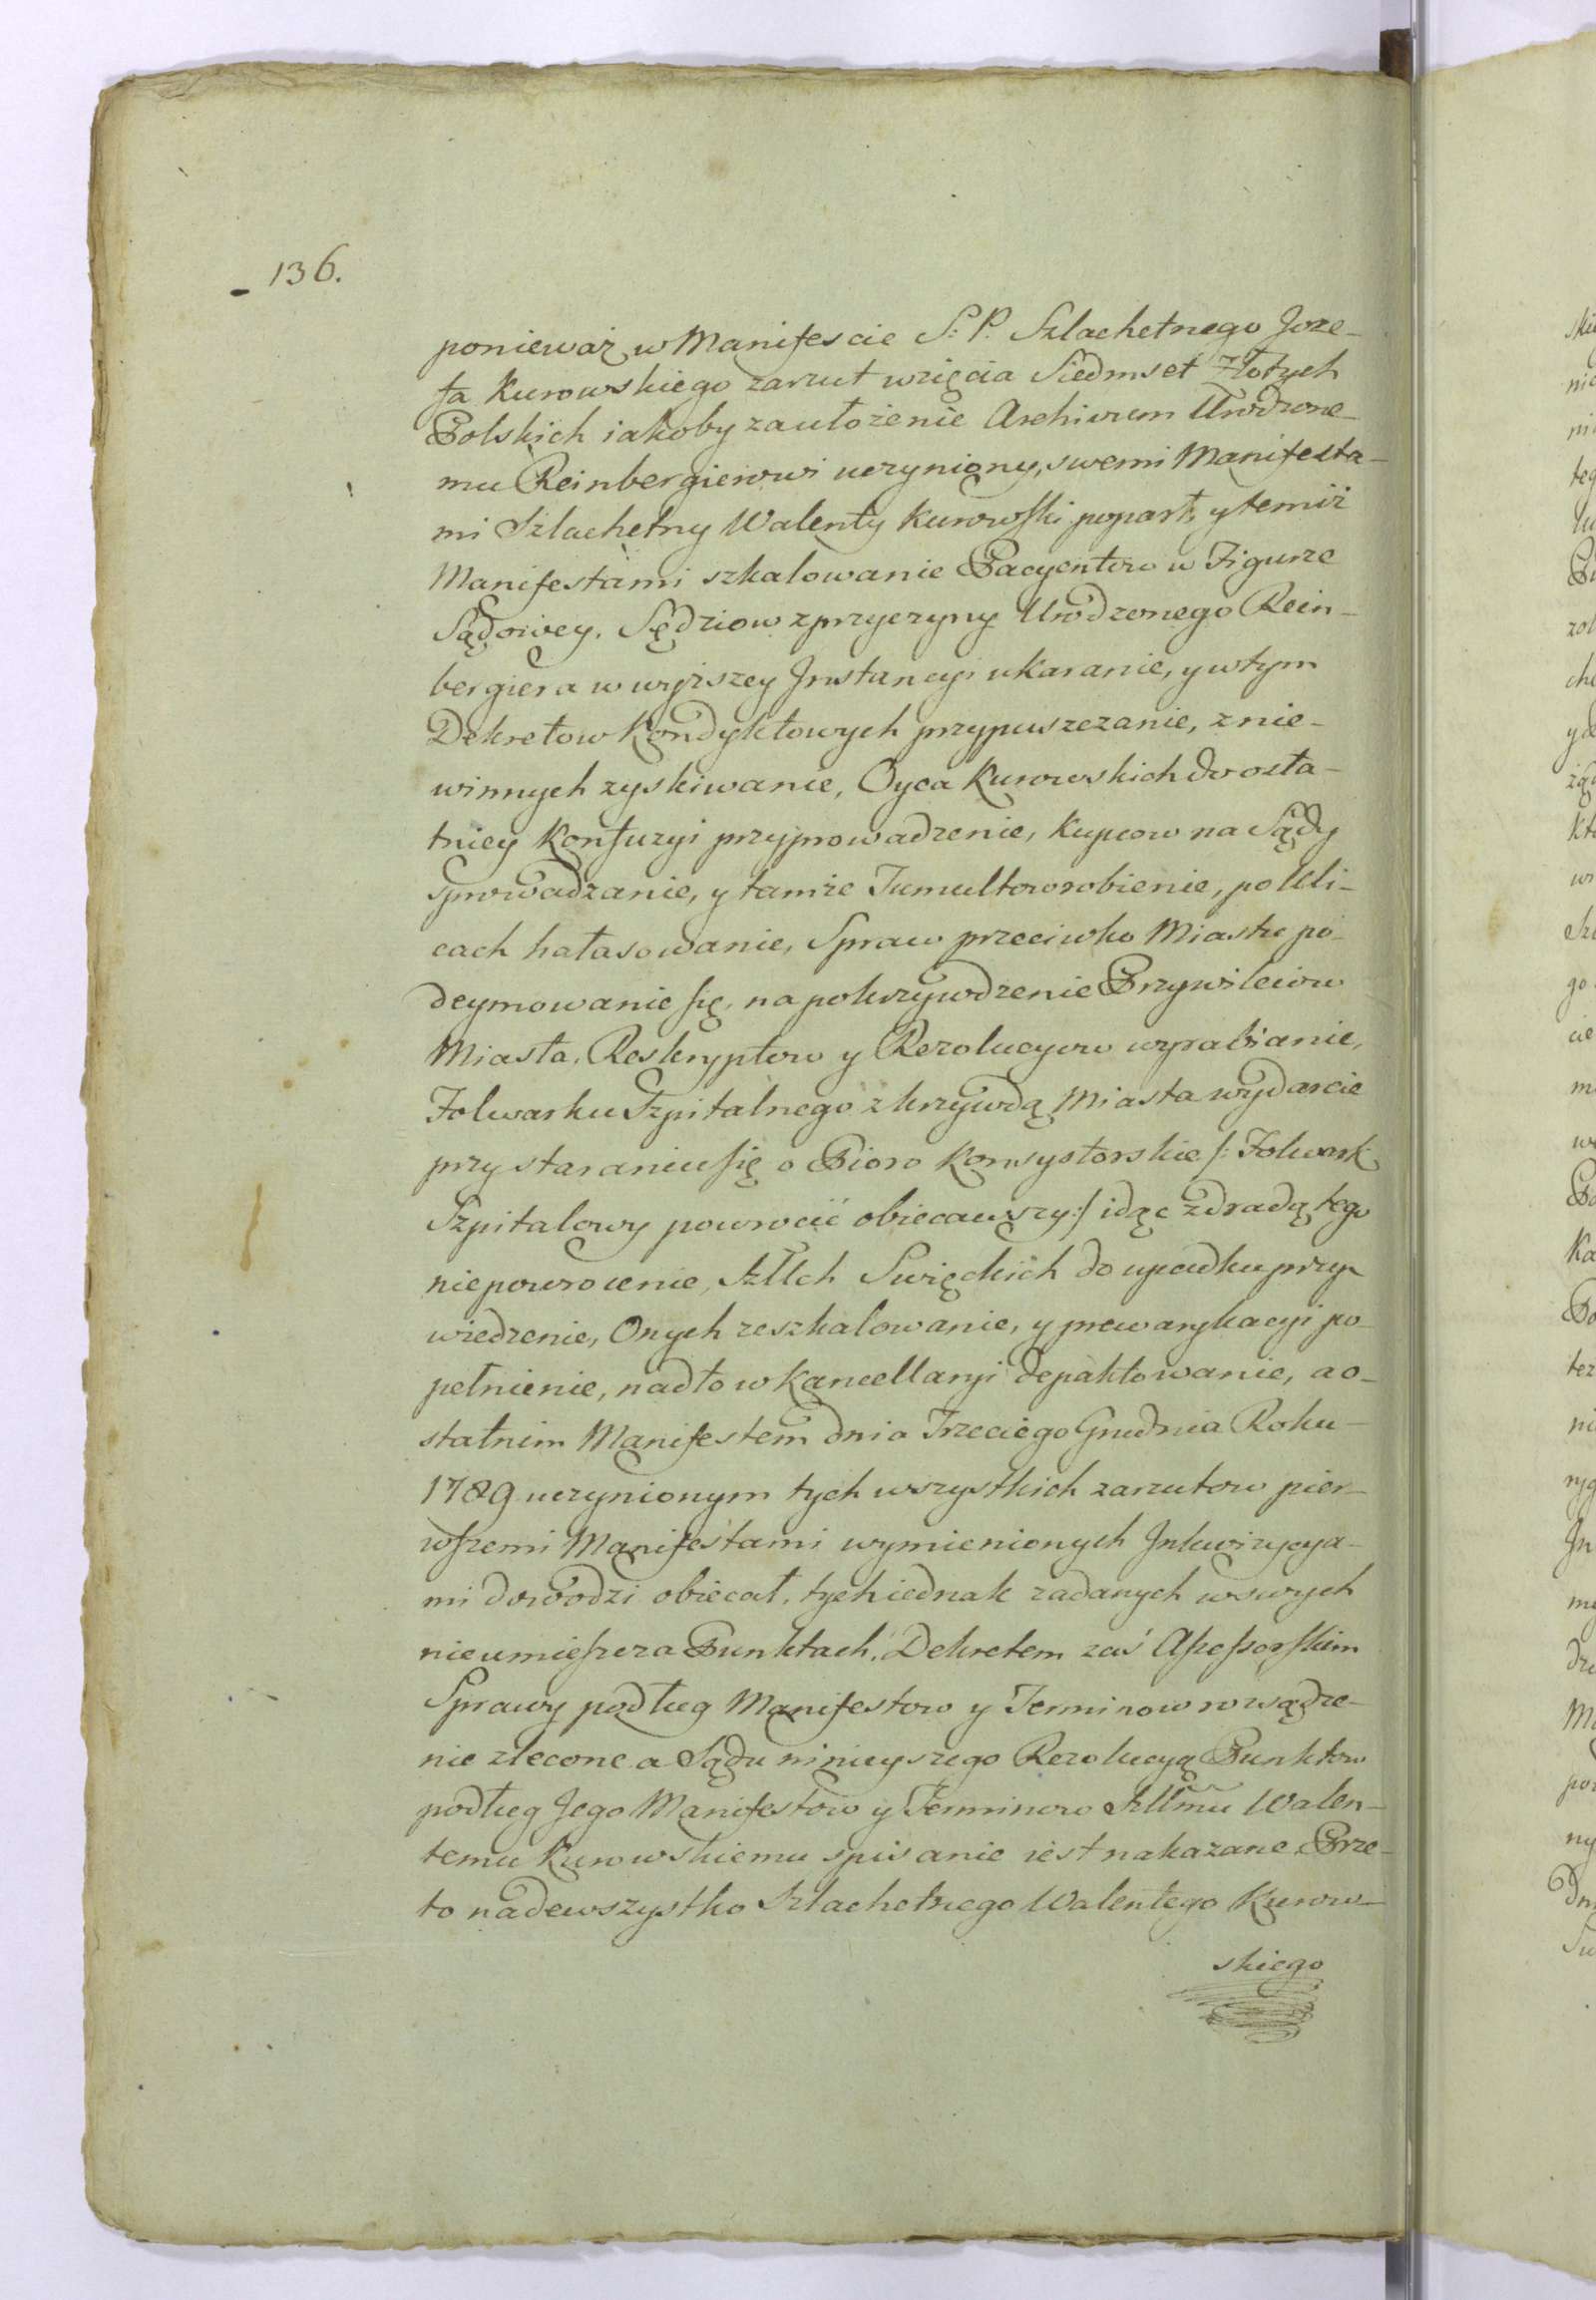 136.
poniewaz w Manifescie S: P. Szlachetnego Joze-
fa Kurowskiego zarzut wzięcia Siedmset Złotych
Polskich iakoby za ułożenie Archivum Urodzone-
mu Reinbergierowi uczyniony, swemi Manifesta-
mi Szlachetny Walenty Kurowski poparł, y temiż
Manifestami szkalowanie Pacyentow w Figurze
Sądowey. Sędziow z przyczyny Urodzonego Rein-
bergiera w wyższey Jnstancyi ukaranie, y w tym
Dekretow Kondyktowych przypuszczanie, z nie-
winnych zyskiwanie, Oyca Kurowskich do osta-
tniey Konfuzyi przyprowadzenie, Kupcow na Sądy
sprowadzanie, y tamże Tumultow robienie, po Uli-
cach hałasowanie, Spraw przeciwko Miastu po-
deymowanie się, na pokrzywdzenie Przywileiow
Miasta, Reskryptow y Rezolucyow wyrabianie,
Folwarku Szpitalnego z krzywdą Miasta wydarcie
przy staraniu się o Pioro Konsystorskie /: Folwark
Szpitalowy powrocić obiecawszy :/ idąc zdradą tego
niepowrocenie, Szllch Swięckich do upadku przy-
wiedzenie, Onych zeszkalowanie, y prewarykacyi po-
pełnienie, nadto w Kancellaryi depaktowanie, a o-
statnim Manifestem dnia Trzeciego Grudnia Roku-
1789 uczynionym tych wszystkich zarzutow pier-
wszemi Manifestami wymienionych Jnkwizycya-
mi dowodzi obiecał, tych iednak zadanych w swych
nieumieszcza Punktach. Dekretem zaś Assessorskim
Sprawy podług Manifestow y Terminow rozsądze-
nie zlecone a Sądu ninieyszego Rezolucyą Punktow
podług Jego Manifestow y Terminow Szllmu Walen-
temu Kurowskiemu spisanie iest nakazane. Prze-
to nadewszystko Szlachetnego Walentego Kurow-
skiego